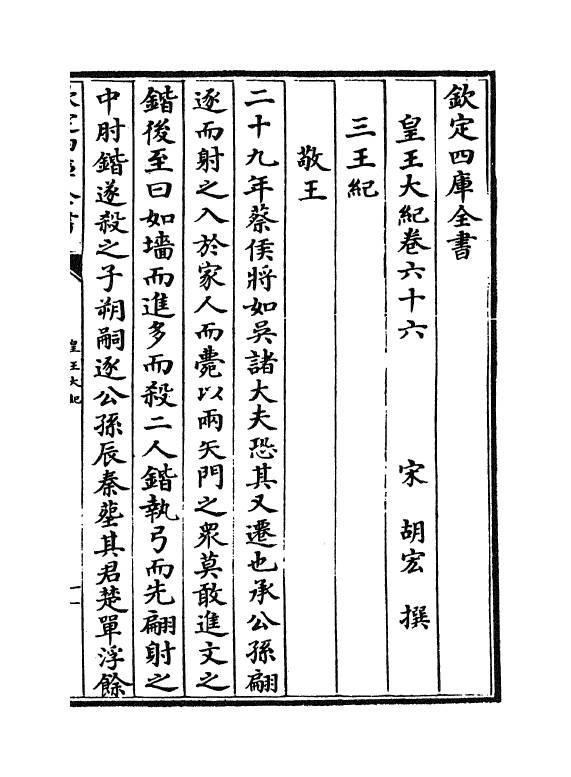 欽定四庫全書
皇王大紀卷六十六　　　宋　胡宏　撰
三王紀
敬王
二十九年蔡侯將如吳諸大夫恐其又遷也承公孫翩
逐而射之入於家人而薨以兩矢門之衆莫敢進文之
鍇後至曰如墻而進多而殺二人鍇執弓而先翩射之
中肘鍇遂殺之子朔嗣逐公孫辰秦塟其君楚單浮餘
皇王大紀
一